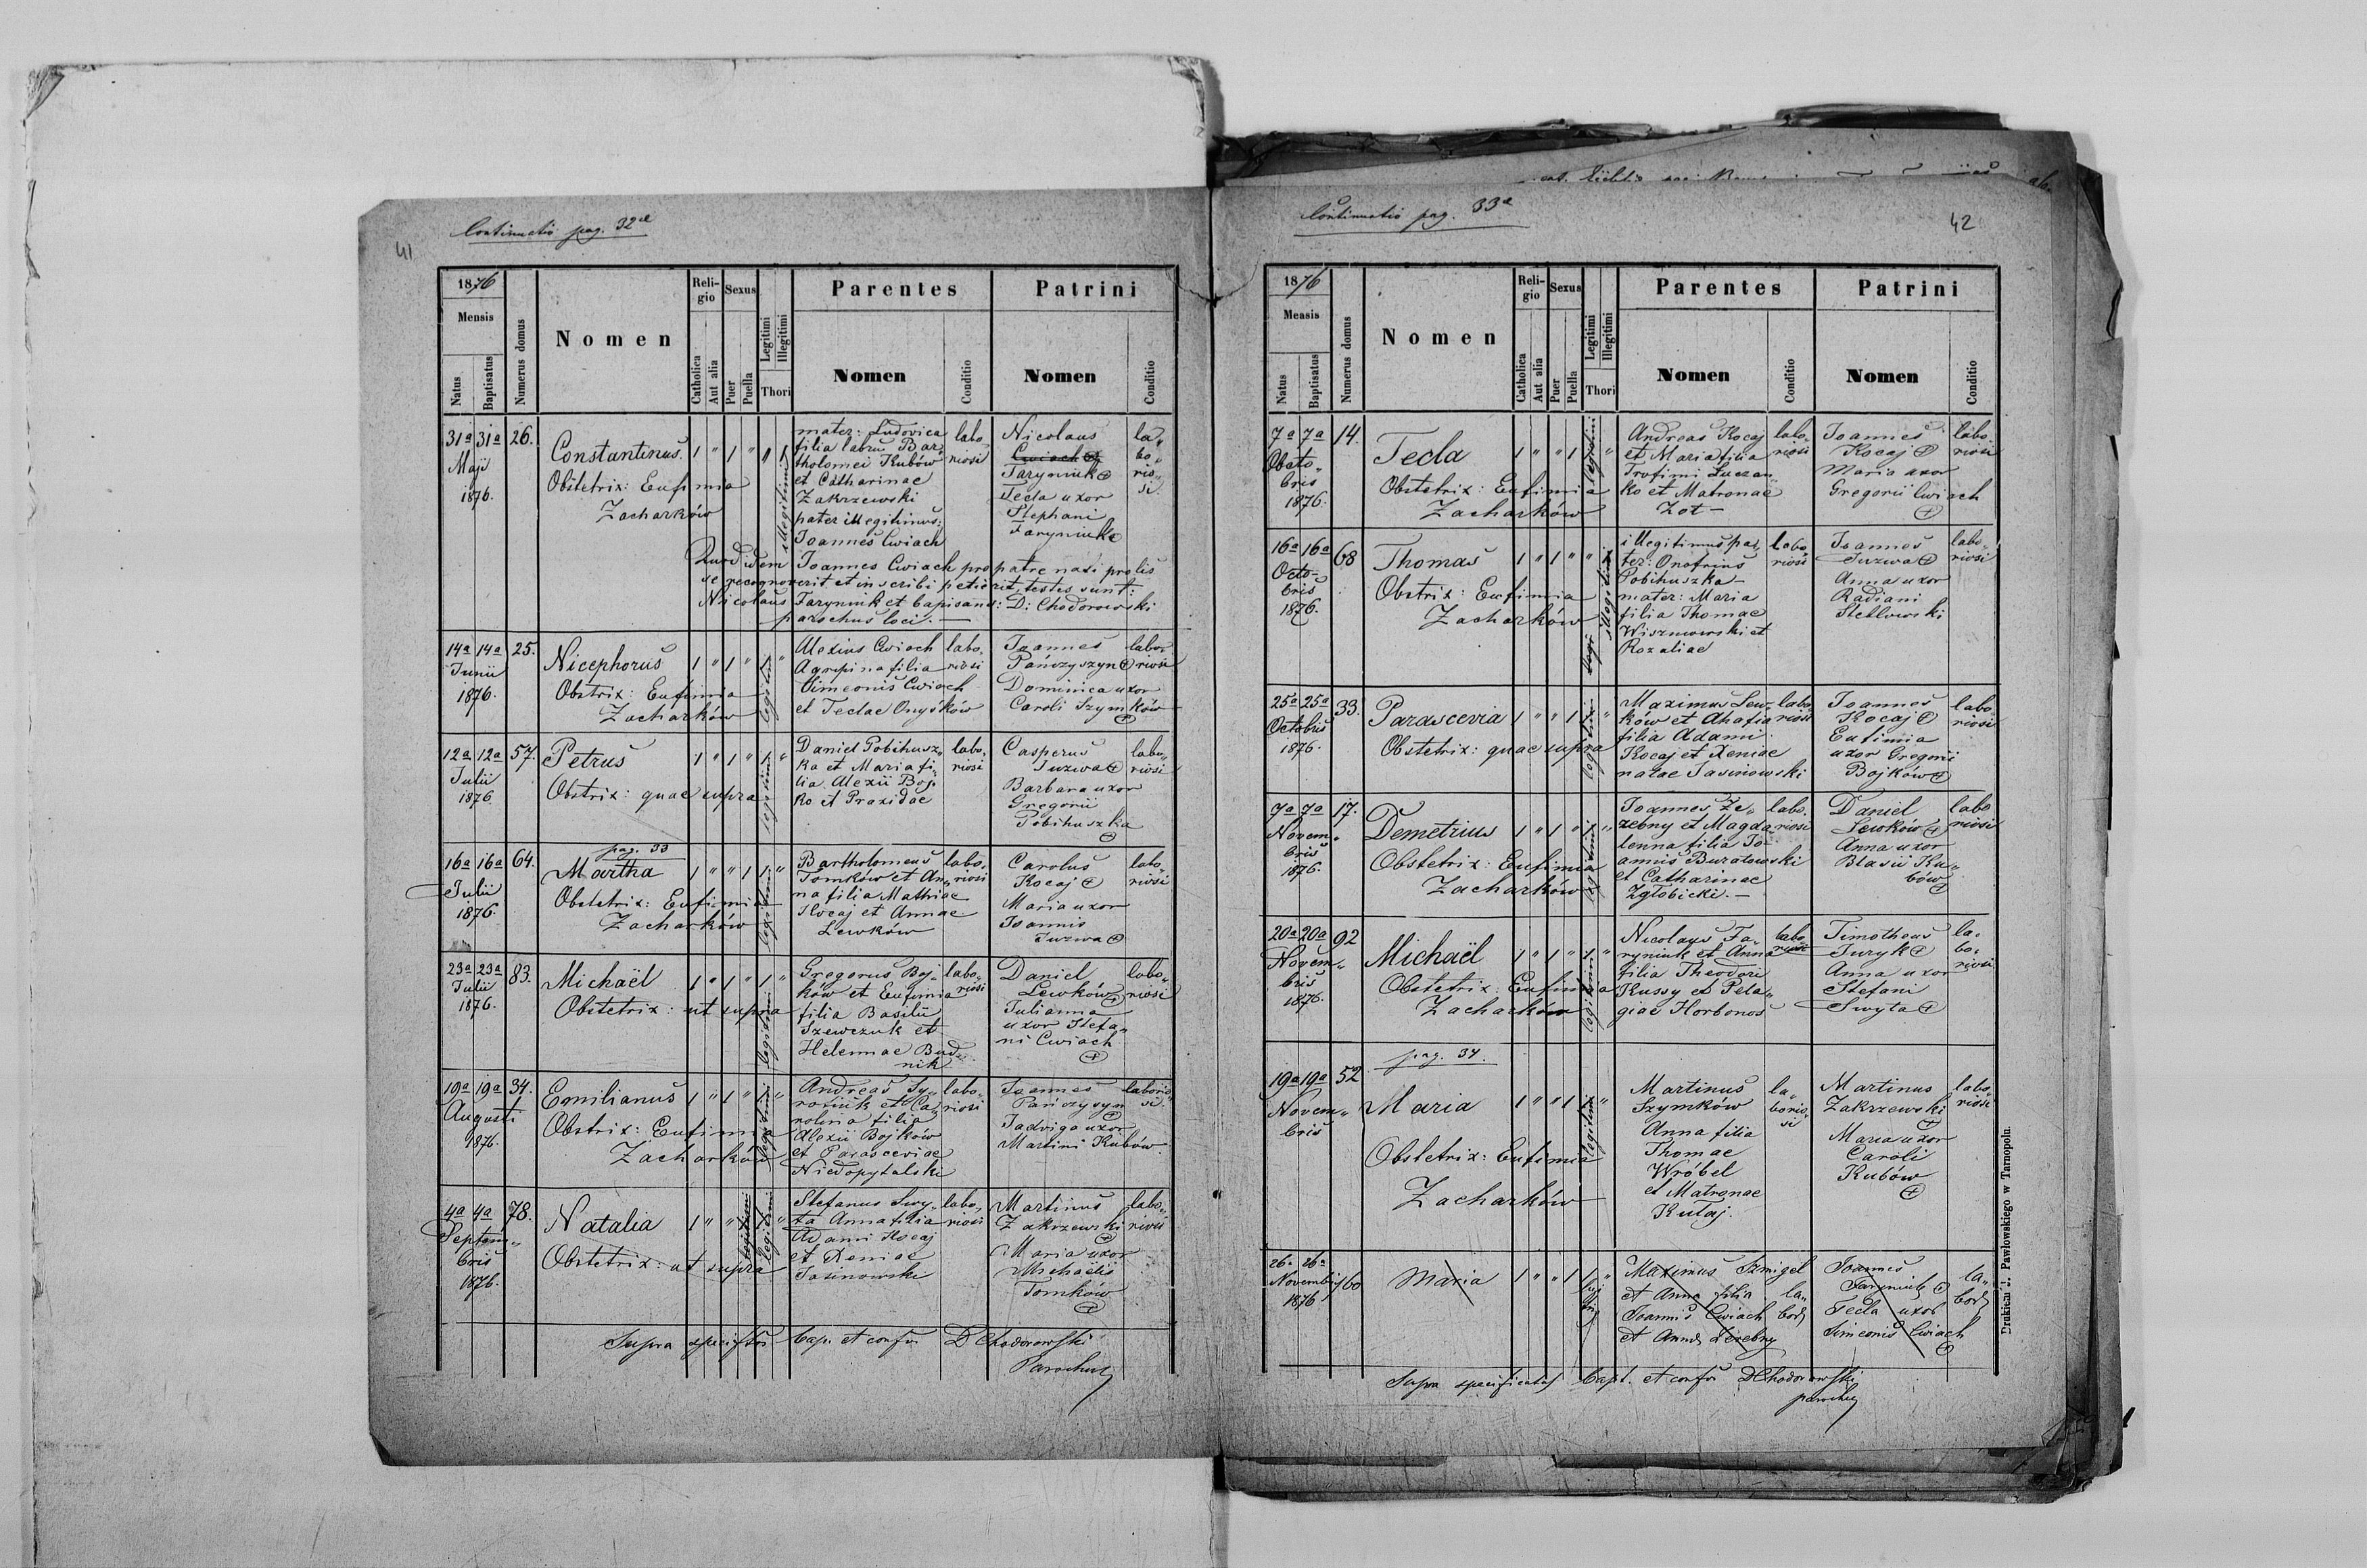 41
Continuatio pag. 32
1876
Mensis
Natus
Baptisatus
Numerus domus
Nomen
Religio
Catholica
Aut alia
Sexus
Puer
Puella
Legitimi
Illegitimi
Thori
Parentes
Nomen
Conditio
Patrini
Nomen
Conditio
31a 31a 26.
Maji
1876.
Constantinus. 1 " 1 " " 1
Obstetrix: Eufimia
Zacharków
illegitimi
mater: Ludovica
filia labrii Bar-
tholomei Kubów
et Catharinae
Zakrzewski
pater illegitimus:
Joannes Cwiach
labo-
riosi
Nicolaus
Cwiach
Faryniuk
Tecla uxor
Stephani
Faryniuk
la-
bo-
rio-
si.
Quod idem Joannes Cwiach pro patre nasi prolis
se recognoverit et inscribi petierit, testes sunt:
Nicolaus Faryniuk et bapisans: D: Chodorowski
parochus loci. —
14a 14a 25.
Junii
1876.
Nicephorus 1 " 1 " 1 "
Obstrix: Eufimia
Zacharków
legitimi
Alexius Cwiach
Agripina filia
Simeonis Cwiach
et Teclae Onyśków
labo-
riosi
Joannes
Pańczyszyn
Dominica uxor
Caroli Szymków
labo-
riosi
12a 12a 57.
Julii
1876
Petrus 1 " 1 " 1 "
Obstrix: quae supra
legitimi
Daniel Pobihusz-
ka et Maria fi-
lia Alexii Boj-
ko et Praxidae
labo-
riosi
Casperus
Juzwa
Barbara uxor
Gregorii
Pobihuszka
labo-
riosi
16a 16a 64.
Julii
1876.
pag. 33
Martha 1 " " 1 1 "
Obstetrix: Eufimia
Zacharków
legitimi
Bartholomeus
Tomków et An-
na filia Mathiae
Kocaj et Annae
Lewków
labo-
riosi
Carolus
Kocaj
Maria uxor
Joannis
Juzwa
labo-
riosi
23a 23a 83.
Julii
1876.
Michaël 1 " 1 " 1 "
Obstetrix: ut supra
legitimi
Gregorus Boj-
ków et Eufimia
filia Basilii
Szewczuk et
Helennae Bud-
nik
labo-
riosi
Daniel
Lewków
Julianna
uxor Stefa-
ni Cwiach
labo-
riosi
19a 19a 34.
Augusti
1876.
Emilianus 1 " 1 " 1 "
Obstrix: Eufimia
Zacharków
legitimi
Andreas Sy-
roniuk et Ca-
rolina filia
Alexii Bojków
et Parasceviae
Niedopytalski
labo-
riosi
Joannes
Pańczyszyn
Jadviga uxor
Martini Kubów
laborio-
si.
4a 4a 78.
Septem-
bris
1876.
Natalia 1 " " 1 1 "
Obstetrix: ut supra
legitimi
Stefanus Swy-
ta Anna filia
Adami Kocaj
et Xeniae
Jasinowski
labo-
riosi
Martinus
Zakrzewski
Maria uxor
Michaëlis
Tomków
labo-
riosi
Supra specif bap. et confir DChodorowski
Parochus
42
Continuatio pag. 33
1876
Mensis
Natus
Baptisatus
Numerus domus
Nomen
Religio
Catholica
Aut alia
Sexus
Puer
Puella
Legitimi
Illegitimi
Thori
Parentes
Nomen
Conditio
Patrini
Nomen
Conditio
7a 7a 14.
Octo-
bris
1876.
Tecla 1 " " 1 1 "
Obstetrix: Eufimia
Zacharków
legitimi
Andreas Kocaj
et Maria filia
Trofimi Luczan-
ko et Matronae
Zot —
labo-
riosi
Joannes
Kocaj
Maria uxor
Gregorii Cwiach
labo-
riosi
16a 16a 68
Octo-
bris
1876.
Thomas 1 " 1 " "
Obstrix: Eufimia
Zacharków
illegitimi
illegitimus pa-
ter: Onofrius
Pobihuszka —
mater: Maria
filia Thomae
Wiszniowski et
Rozaliae
labo-
riosi
Joannes
Juzwa
Anna uxor
Radiani
Steblowski
labo-
riosi
25a 25a 33.
Octobris
1876.
Parascevia 1 " " 1 1 "
Obstetrix: quae supra
legitimi
Maximus Lew-
ków et Ahafia
filia Adami
Kocaj et Xeniae
natae Jasinowski
labo-
riosi
Joannes
Kocaj
Eufimia
uxor Gregorii
Bojków
labo-
riosi
7a 7a 17.
Novem-
bris
1876.
Demetrius 1 " 1 " 1 "
Obstetrix: Eufimia
Zacharków
legitimi
Joannes Ze-
rebny et Magda-
lenna filia Jo-
annis Buratowski
et Catharinae
Zgłobicki. —
labo-
riosi
Daniel
Lewków
Anna uxor
Blasii Ku-
bów
labo-
riosi
20a 20a 92
Novem-
bris
1876.
Michaël 1 " 1 " 1 "
Obstetrix: Eufimia
Zacharków
legitimi
Nicolaus Fa-
ryniuk et Anna
filia Theodori
Kussy et Pela-
giae Horbonos
labo-
riosi
Timotheus
Juryk
Anna uxor
Stefani
Swyta
la-
bo-
riosi
19a 19a 52
Novem-
bris
pag. 34.
Maria 1 " " 1 1 "
Obstetrix: Eufimia
Zacharków
legitimi
Martinus
Szymków
Anna filia
Thomae
Wróbel
et Matronae
Kutaj.
la-
borio-
si
Martinus
Zakrzewski
Maria uxor
Caroli
Kubów
labo-
riosi
26a 26a 60
Novembris
1876
Maria 1 " " 1 1 "
Maximus Szmigel
et Anna filia
Joannis Cwiach
et Annae Zerebny
la-
bor
Joannes
Faryniuk
Tecla uxor
Simeonis Cwiach
la-
bor
Supra specificatos bapt. et confir DChodorowski
parochus
Drukiem J. Pawlowskiego w Tarnopolu.